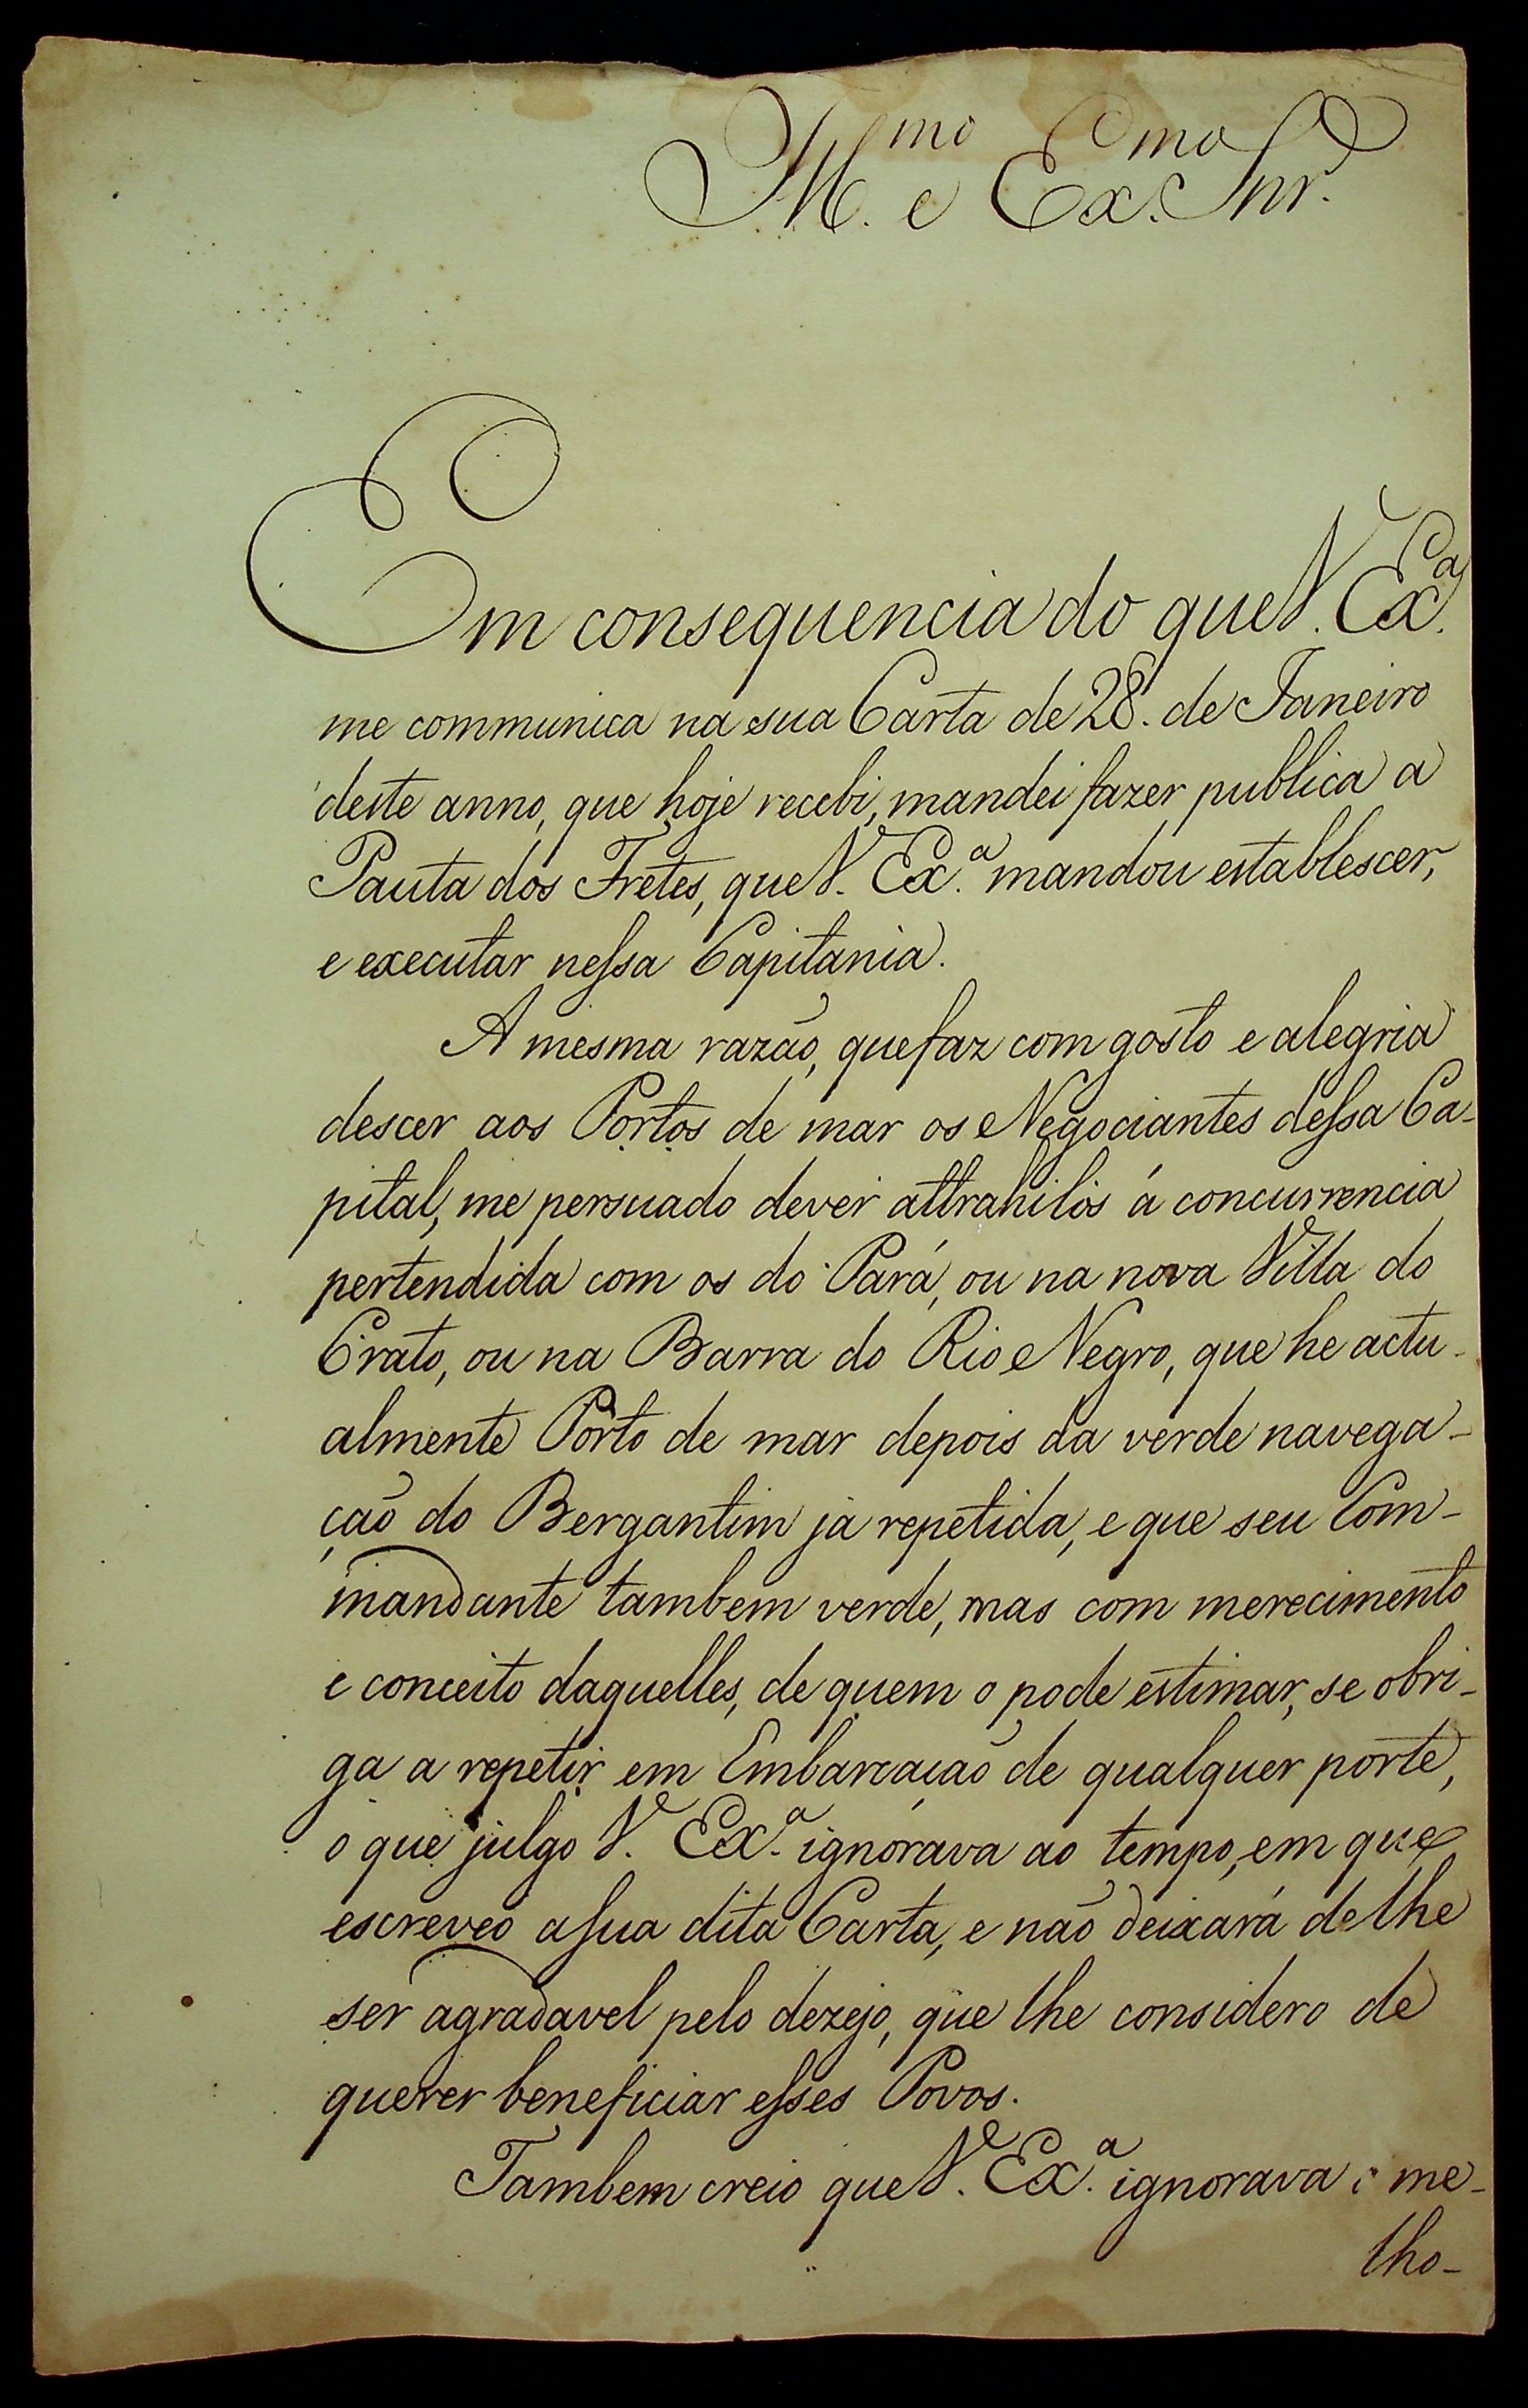 Ill.mo e Ex.mo Snr.
Em consequencia do que V. Ex.a
me communica na sua Carta de 28. de Janeiro
deste anno, que hoje recebi, mandei fazer publica a
Pauta dos Fretes, que V. Ex.a mandou establescer,
e executar nessa Capitania.
A mesma razão, que faz com gosto e alegria
descer aos Portos de mar os Negociantes dessa Ca-
pital, me persuado dever attrahilos á concurrencia
pertendida com os do Pará, ou na nova Villa do
Crato, ou na Barra do Rio Negro, que he actu-
almente Porto de mar depois da verde navega-
ção do Bergantim já repetida, e que seu Com-
mandante tambem verde, mas com merecimento
e conceito daquelles, de quem o pode estimar, se obri-
ga a repetir em Embarcação de qualquer porte,
o que julgo V. Ex.a ignorava ao tempo, em que
escreveo a sua dita Carta, e não deixará de lhe
ser agradavel pelo dezejo, que lhe considero de
querer beneficiar esses Povos.
Tambem creio que V. Ex.a ignorava o me-
lho-